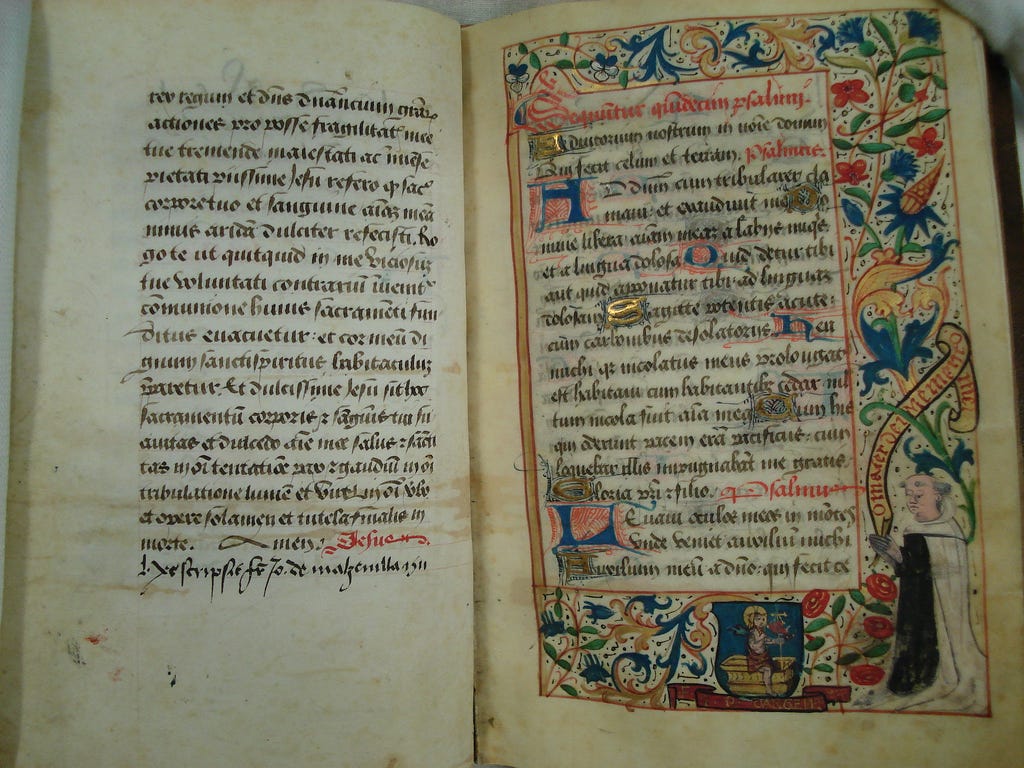 rex regum et dns dnancium graz
actiones pro posse fragilitat mee
tue tremende maiestati ac
pietati piissime Jesu refero q sac
corpore tuo et sanguine aiaz mea
nimis aridā dulciter refecisti. Ro
go te ut quitquid in me viciosuz
tue voluntati contrariū iueniт
cōmunione huius sacramēti fun
ditus evacuetur: et cor meū di
gnum sanctispiritus habitaculuz
paretur. Et dulcissime Jesu sit hoc
sacramentū corporis ⁊ sanguis tui su
avitas et dulcedo aīe mee salus ⁊ sancti
tas in oī tentatiōe pax ⁊ gaudiū in oī
tribulatione lumen et virt⁹ in oī vbo
et opere solamen et tutela finalis in
morte. Amen. Jesus.
scripsit fr Jo. de
Sequntur quidecim psalmi.
Adiutorium nostrum in noīe domini
Qui fecit celum et terram. Psalmus.
AD dnium cum tribularer cla
mavi: et exaudivit me
mine libera aīam meaz a labiis iniqs
et a lingua dolosa Quid detur tibi
aut quid apponatur tibi: ad linguaz
dolosam Sagitte potentis acute:
cum carbonibus desolatoriis Heu
michi q incolatus meus prolongat
est habitavi cum habitantibz cedar mul
tum incola fuit aīa mea Cum his
qui oderunt pacem erā pacificus: cum
loquebar illis impugnabāt me gratis
Gloria pri ⁊ filio. Psalmus
LEvavi oculos meos in mōtes
Unde veniet auxiliū michi
Auxilium meū a dno: qui fecit ce
O mater dei memento mei